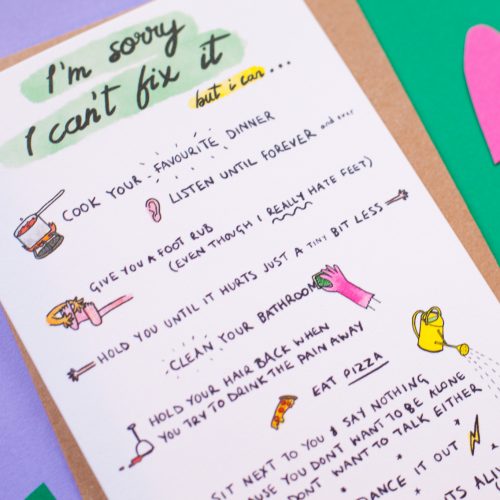 I'm sorry
I can't fix it
but i can...
COOK YOUR FAVOURITE DINNER
LISTEN UNTIL FOREVER and ever
GIVE YOU A FOOT RUB
(EVEN THOUGH I REALLY HATE FEET)
HOLD YOU UNTIL IT HURTS JUST A TINY BIT LESS
CLEAN YOUR BATHROOM
HOLD YOUR HAIR BACK WHEN
YOU TRY TO DRINK THE PAIN AWAY
EAT PIZZA
SIT NEXT TO YOU & SAY NOTHING
YOU DONT WANT TO BE ALONE
DONT WANT TO TALK EITHER
DANCE IT OUT